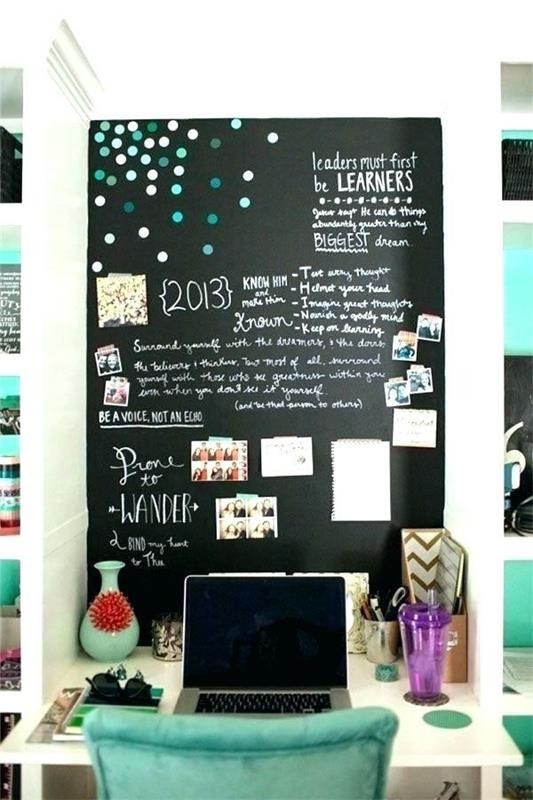 leaders must first
be LEARNERS
Jesus says He can do things
abundantly greater than my
BIGGEST dream.
{2013}
KNOW HIM
and
make Him
Known
- Test every thought
- Helmet your head
- Imagine great thoughts
- Nourish a godly mind
- Keep on learning
Surround yourself with the dreamers, & the doers,
the believers & thinkers, but most of all, surround
yourself with those who see greatness within you
even when you don't see it yourself.
(and be that person to others)
BE A VOICE, NOT AN ECHO.
Prone
to
WANDER
BIND my heart
to Thee